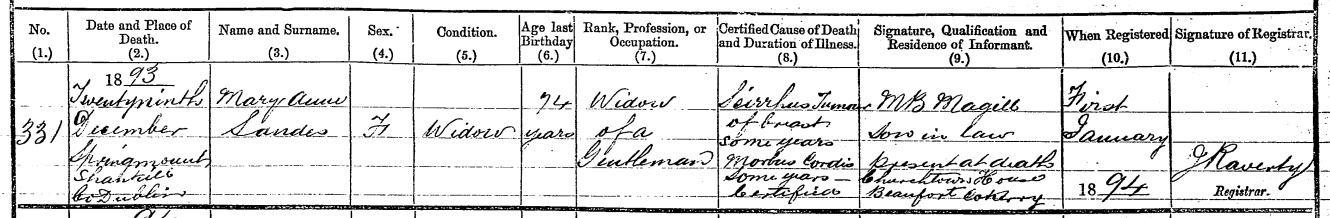 No. (1.)
Date and Place of Death. (2.)
Name and Surname. (3.)
Sex. (4.)
Condition. (5.)
Age last Birthday (6.)
Rank, Profession, or Occupation. (7.)
Certified Cause of Death and Duration of Illness. (8.)
Signature, Qualification and Residence of Informant. (9.)
When Registered (10.)
Signature of Registrar. (11.)
331
1893
Twentyninth
December
Springmount
Shankill
Co Dublin
Mary Anne
Sandes
F
Widow
74
years
Widow
of a
Gentleman
Scirrhus Tumour
of breast
some years
Morbus Cordis
some years —
Certified
M B Magill
son in law
present at death
Churchtown House
Beaufort Co Kerry
First
January
1894
J Raverty
Registrar.